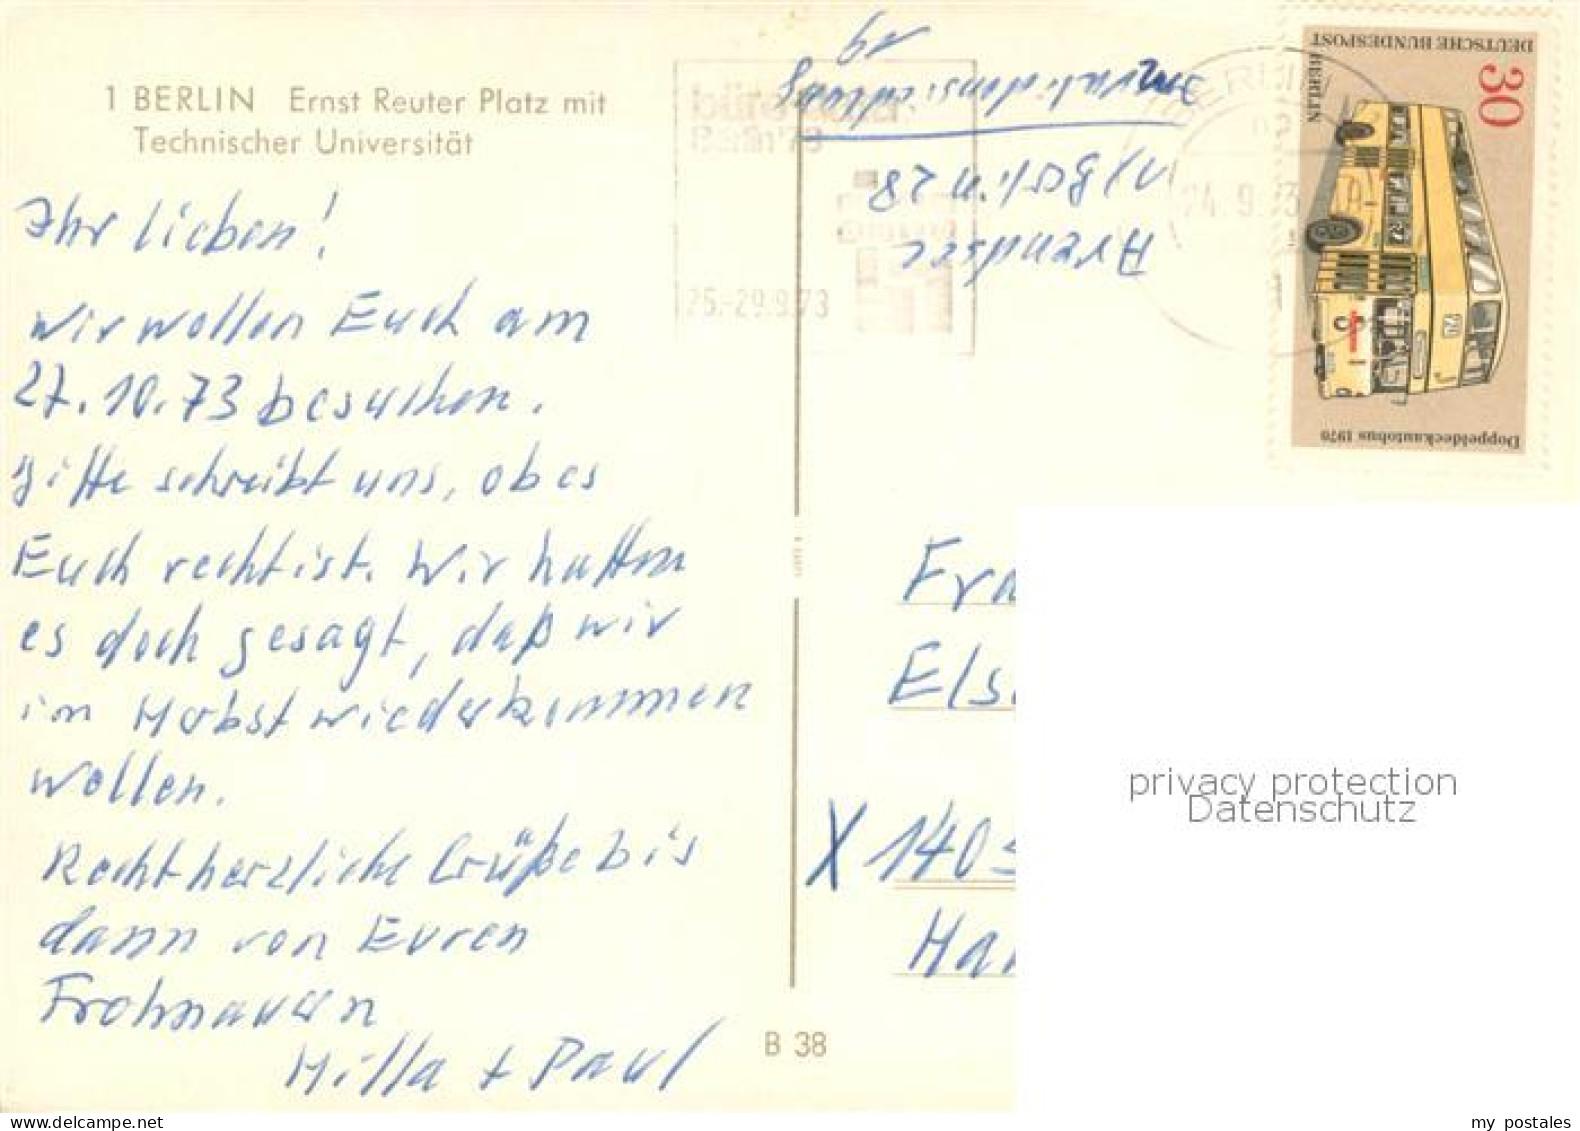 1 BERLIN Ernst Reuter Platz mit
Technischer Universität
Ihr lieben!
wir wollen Euch am
27.10.73 besuchen.
Bitte schreibt uns, ob es
Euch recht ist. Wir hatten
es doch gesagt, daß wir
im Herbst wiederkommen
wollen.
Recht herzliche Grüße bis
dann von Euren
Frohnauern
Hilla + Paul
Berlin '73
25.-29.9.73
1 Berlin 28
BERLIN
24.9.73
30
DEUTSCHE BUNDESPOST
BERLIN
Doppeldeckautobus 1970
Fra
Els
X 140
Ha
B 38
privacy protection
Datenschutz
my postales